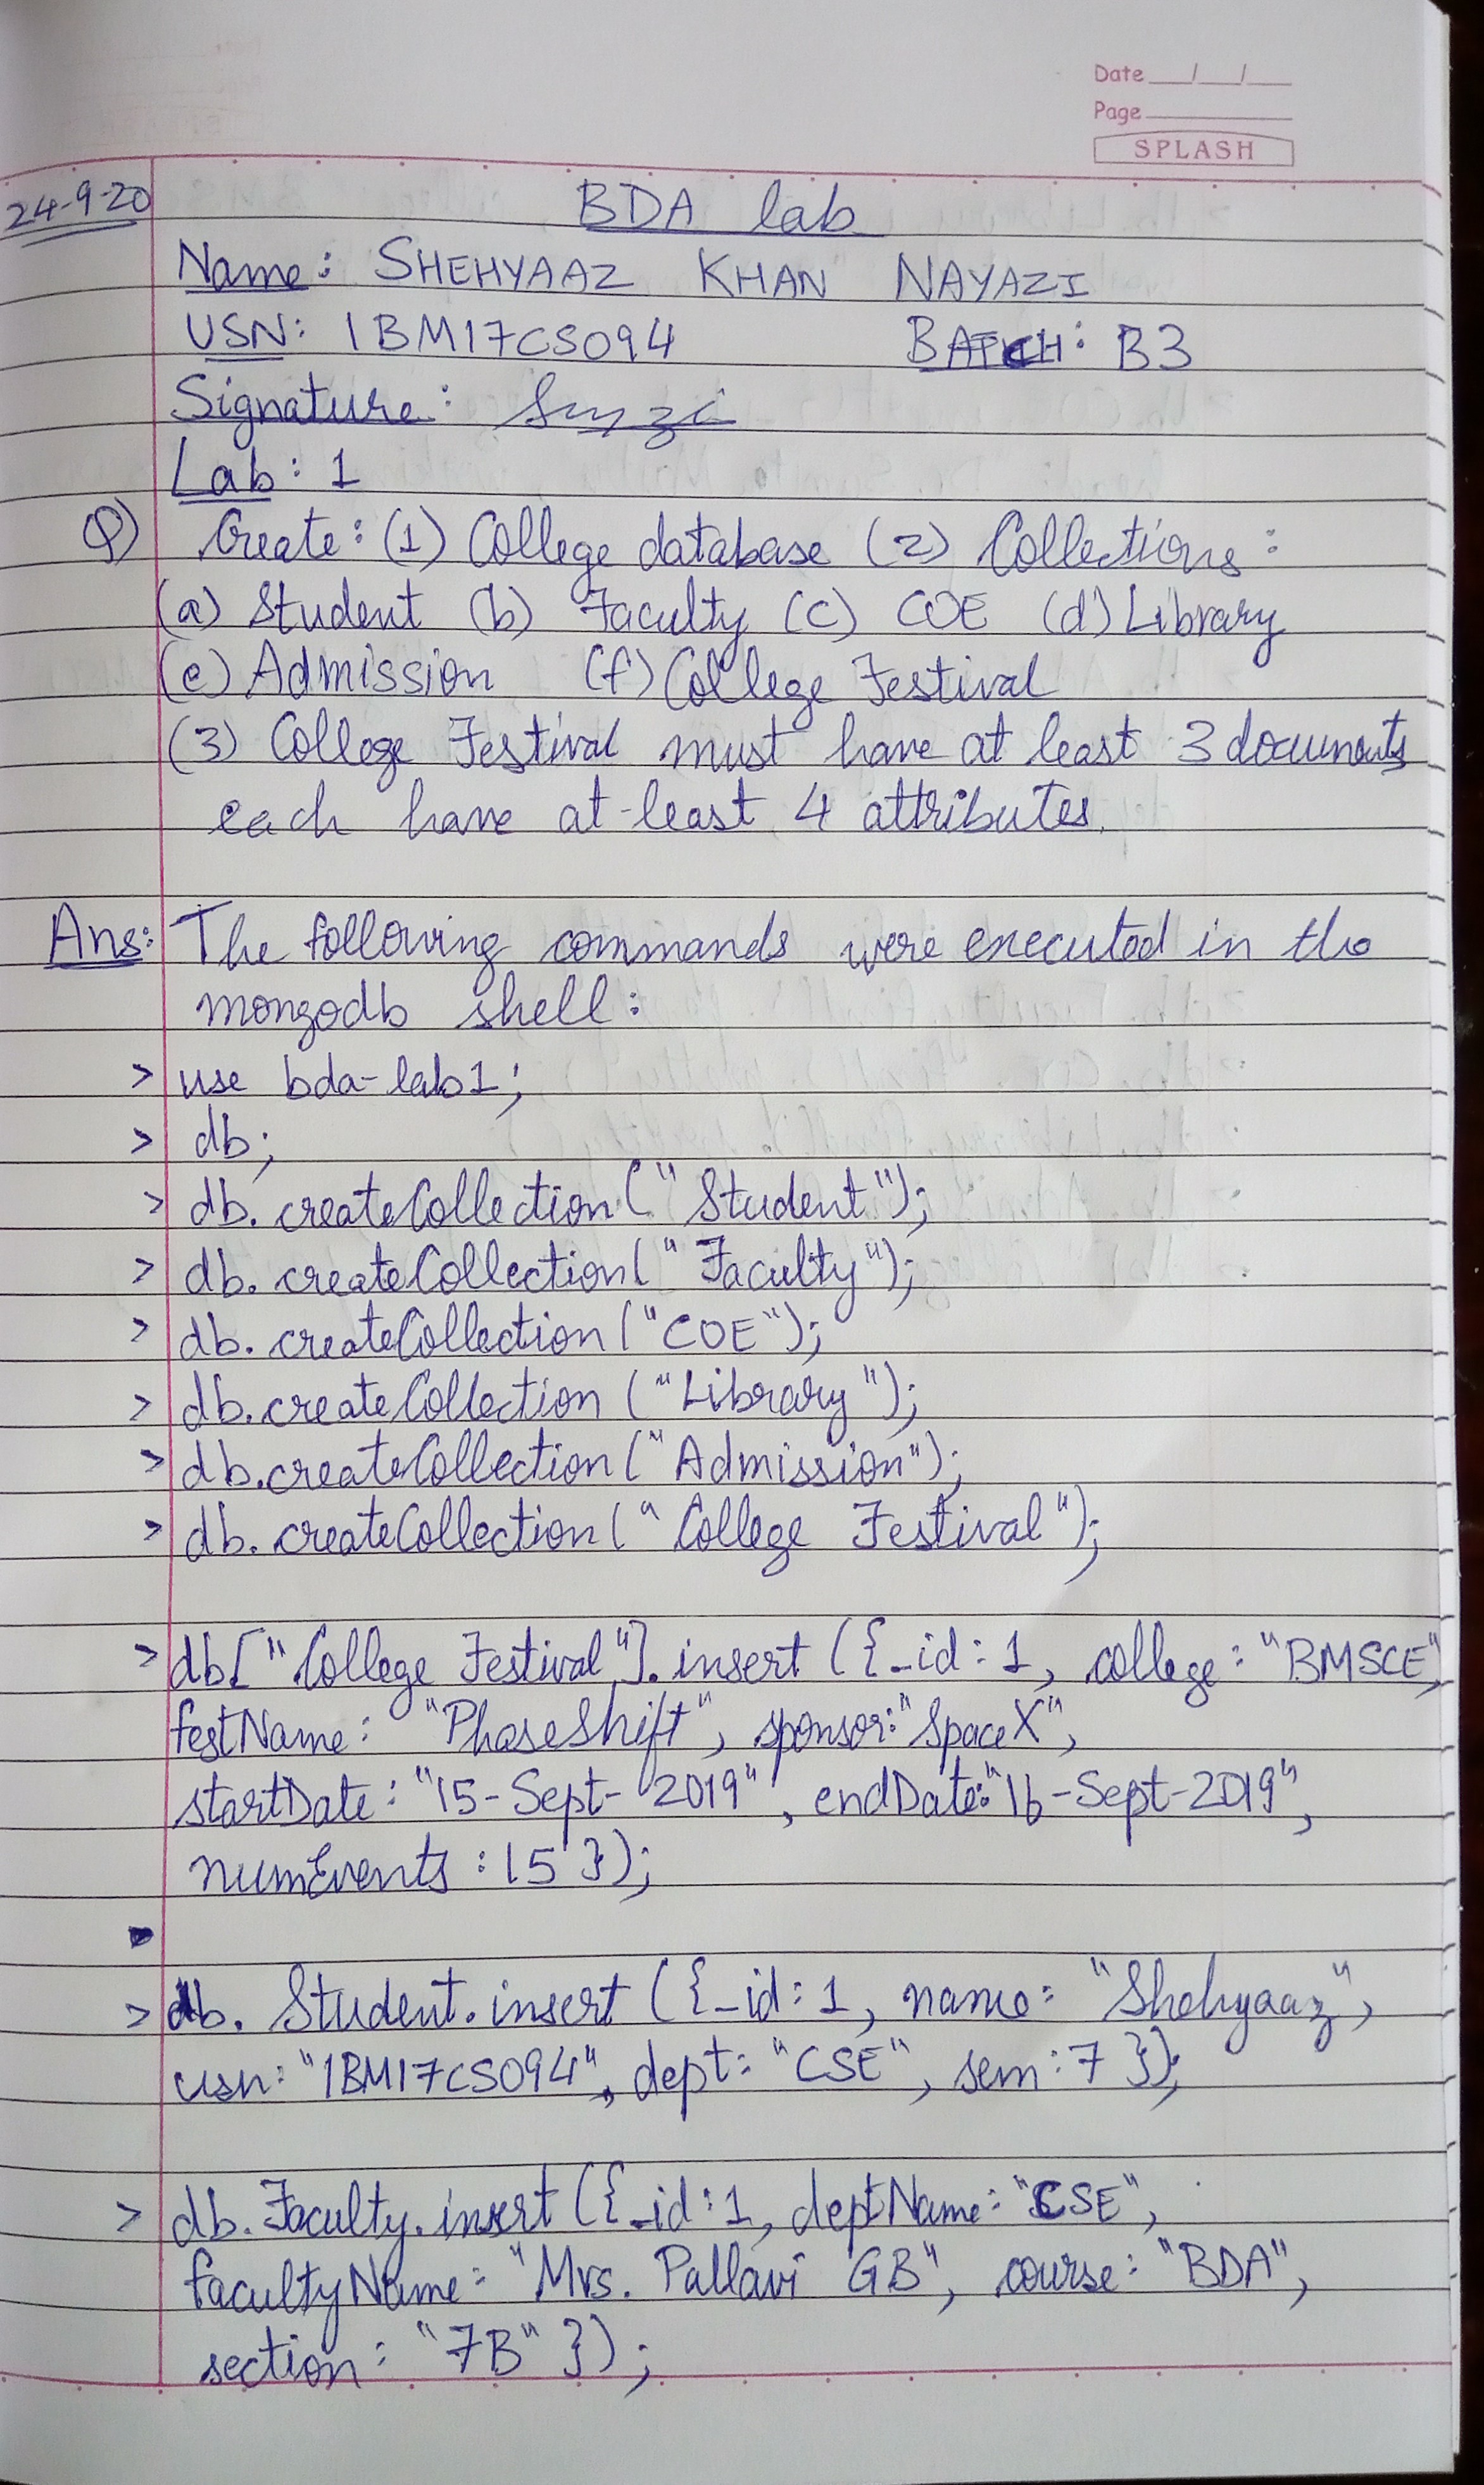 Date __/__/__
Page
SPLASH
24-9-20
BDA lab
Name: SHEHYAAZ KHAN NAYAZI
USN: 1BM17CS094 BATCH: B3
Signature:
Lab: 1
Q) Create: (1) College database (2) Collections:
(a) Student (b) Faculty (c) COE (d) Library
(e) Admission (f) College Festival
(3) College Festival must have at least 3 documents
each have at-least 4 attributes.
Ans: The following commands were executed in the
mongodb shell:
> use bda-lab1;
> db;
> db.createCollection("Student");
> db.createCollection("Faculty");
> db.createCollection("COE");
> db.createCollection("Library");
> db.createCollection("Admission");
> db.createCollection("College Festival");
> db["College Festival"].insert({_id:1, college: "BMSCE",
festName: "PhaseShift", sponsor: "SpaceX",
startDate: "15-Sept-2019", endDate: "16-Sept-2019",
numEvents: 15 });
> db.Student.insert({_id:1, name: "Shehyaaz",
usn: "1BM17CS094", dept: "CSE", sem: 7 });
> db.Faculty.insert({_id:1, deptName: "CSE",
facultyName: "Mrs. Pallavi GB", course: "BDA",
section: "7B" });